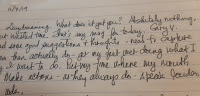 Daydreaming. What does it get you? Absolutely nothing,
but wasted time. That's my rag for today, Gary V.
had some good suggestions & thoughts - need to capture
than actually do - get my feet out doing what I
I want to do. Put my time where my mouth
Make actions - as they always do - speak louder